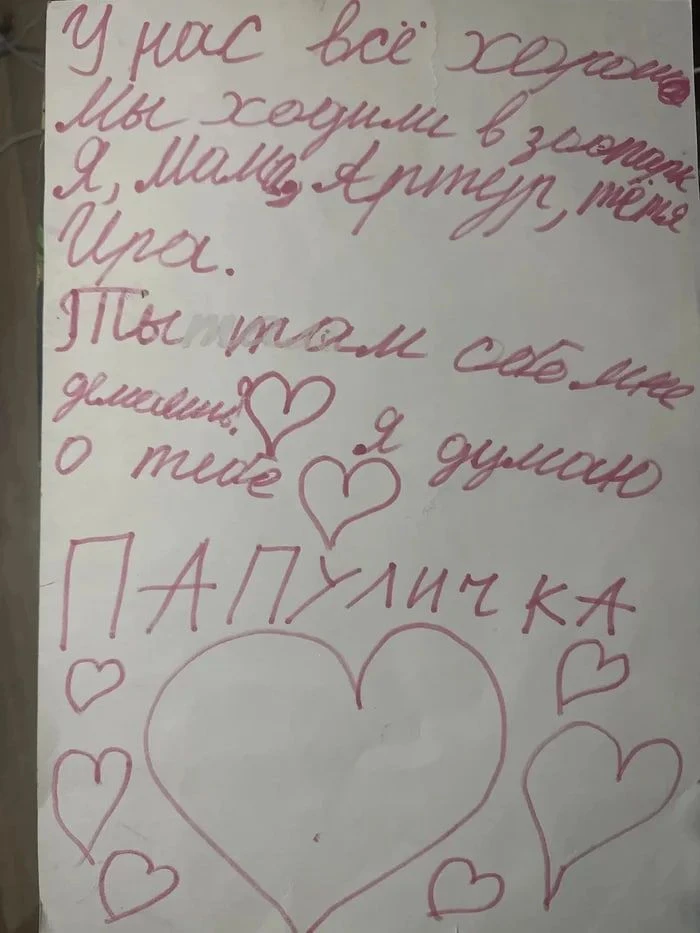 У нас всё хорошо
Мы ходили в зоопарк
Я, мама, Артур, тётя
Ира.
Ты там
о тебе Я думаю
ПАПУЛИЧКА